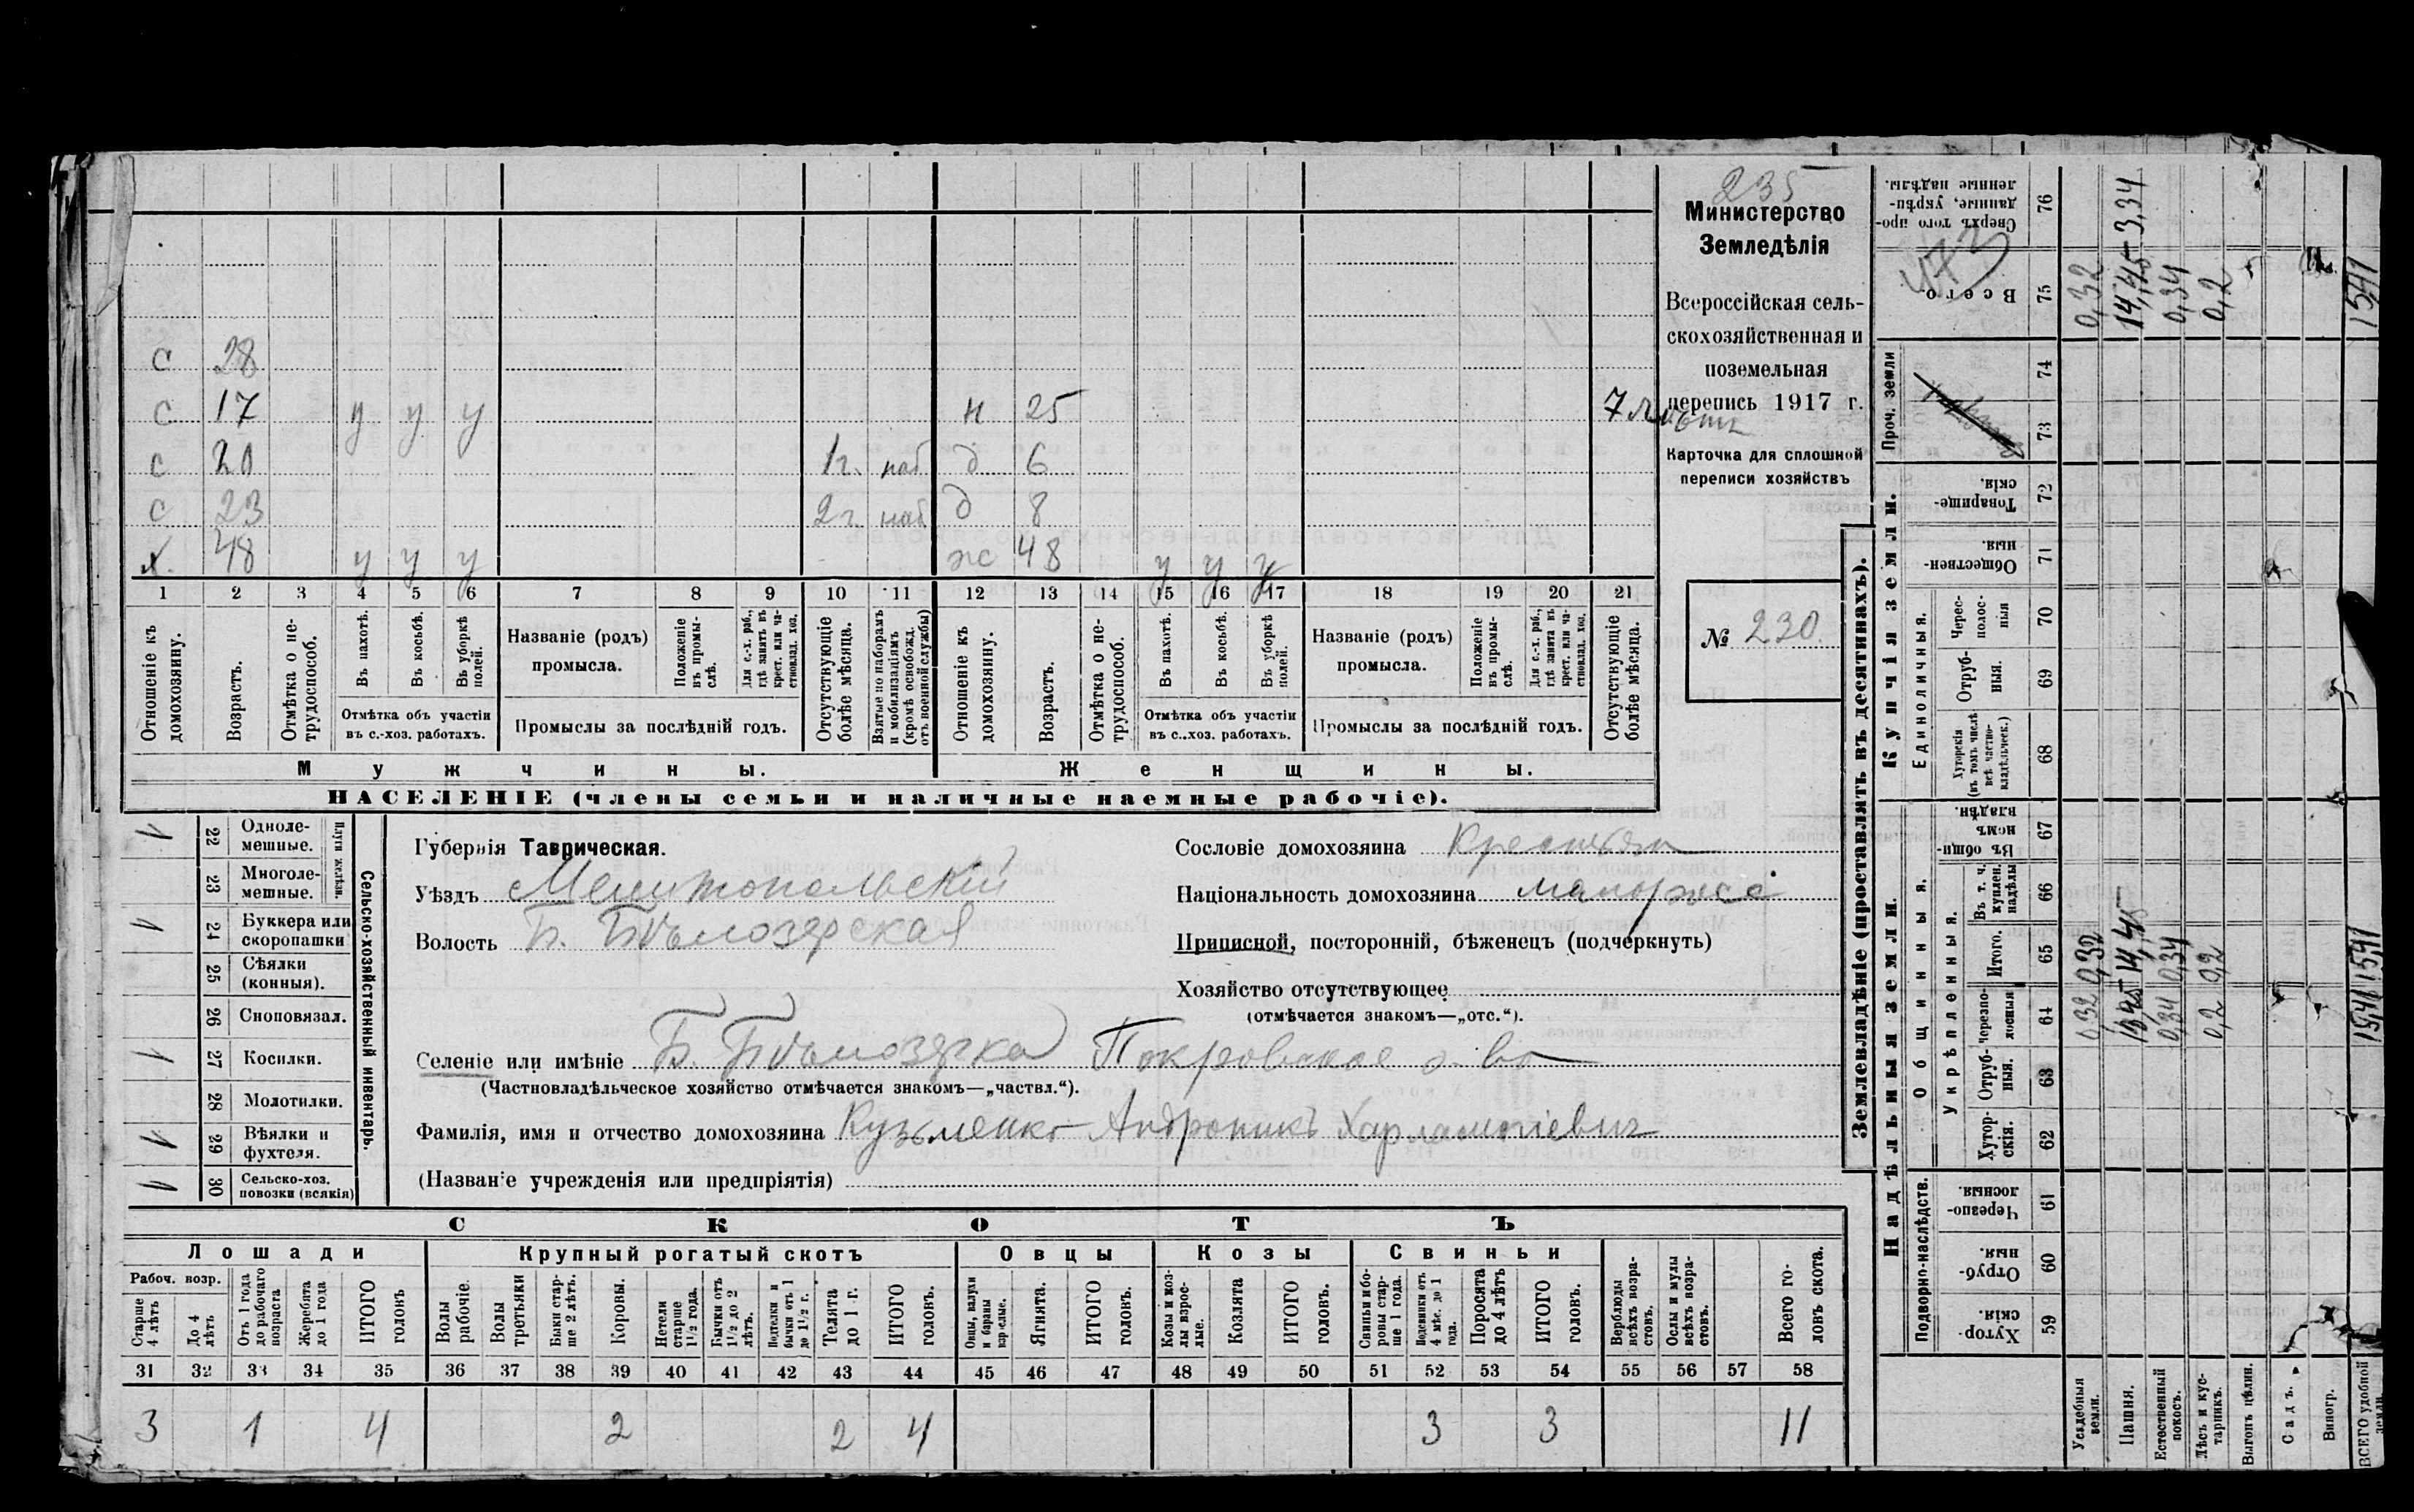 235
Министерство
Земледѣлія
Всероссійская сель-
скохозяйственная и
поземельная
перепись 1917 г.
Карточка для сплошной
переписи хозяйствъ
№ 230.
с 28
с 17 у у у н 25 7 л
с 20 1 г. наб д 6
с 23 2 г. наб д 8
х. 48 у у у ж 48 у у у
1 2 3 4 5 6 7 8 9 10 11 12 13 14 15 16 17 18 19 20 21
Отношеніе къ домохозяину.
Возрастъ.
Отмѣтка о не-трудоспособ.
Въ пахотѣ.
Въ косьбѣ.
Въ уборкѣ полей.
Отмѣтка объ участіи
въ с.-хоз. работахъ.
Названіе (родъ)
промысла.
Положеніе въ промы-слѣ.
Для с.-х. раб., гдѣ занятъ въ крест. или ча-стновлад. хоз.
Промыслы за послѣдній годъ.
Отсутствующіе болѣе мѣсяца.
Взятые по наборамъ и мобилизаціямъ (кромѣ освобожд. отъ военной службы)
Отношеніе къ домохозяину.
Возрастъ.
Отмѣтка о не-трудоспособ.
Въ пахотѣ.
Въ косьбѣ.
Въ уборкѣ полей.
Отмѣтка объ участіи
въ с..хоз. работахъ.
Названіе (родъ)
промысла.
Положеніе въ промы-слѣ.
Для с.-х. раб., гдѣ занята въ крест. или ча-стновлад. хоз.
Промыслы за послѣдній годъ.
Отсутствующіе болѣе мѣсяца.
Мужчины. Женщины.
НАСЕЛЕНІЕ (члены семьи и наличные наемные рабочіе).
Сельско-хозяйственный инвентарь.
Плуги желѣзн.
22 Одноле-мешные. 1
23 Многоле-мешные.
24 Буккера или скоропашки 1
25 Сѣялки (конныя).
26 Сноповязал.
27 Косилки. 1
28 Молотилки.
29 Вѣялки и фухтеля. 1
30 Сельско-хоз. повозки (всякія) 1
Губернія Таврическая.
Уѣздъ Мелитопольскій
Волость Б. Бѣлозерская
Сословіе домохозяина Крестьян
Національность домохозяина малорос
Приписной, посторонній, бѣженецъ (подчеркнуть)
Хозяйство отсутствующее
(отмѣчается знакомъ—„отс.“).
Селеніе или имѣніе Б. Бѣлозерка Покровское о-во
(Частновладѣльческое хозяйство отмѣчается знакомъ—„частвл.“).
Фамилія, имя и отчество домохозяина Кузьменко Андроникъ Харлампіевич
(Названіе учрежденія или предпріятія)
СКОТЪ
Лошади Крупный рогатый скотъ Овцы Козы Свиньи
Рабоч. возр.
Старше 4 лѣтъ
До 4 лѣтъ
Отъ 1 года до рабочаго возраста
Жеребята до 1 года
ИТОГО головъ
Волы рабочіе.
Волы третьяки
Быки стар-ше 2 лѣтъ.
Коровы.
Нетели старше 1½ года.
Бычки отъ 1½ до 2 лѣтъ.
Подтелки и бычки отъ 1 до 1½ г.
Телята до 1 г.
ИТОГО головъ.
Овцы, валухи и бараны взрослые.
Ягнята.
ИТОГО головъ.
Козы и коз-лы взрос-лые.
Козлята
ИТОГО головъ.
Свиньи и бо-ровы стар-ше 1 года.
Подсвинки отъ 4 мѣс. до 1 года.
Поросята до 4 лѣтъ
ИТОГО головъ.
Верблюды всѣхъ возра-стовъ.
Ослы и мулы всѣхъ возра-стовъ.
Всего го-ловъ скота.
31 32 33 34 35 36 37 38 39 40 41 42 43 44 45 46 47 48 49 50 51 52 53 54 55 56 57 58
3 1 4 2 2 4 3 3 11
Землевладѣніе (проставлять въ десятинахъ).
Надѣльныя земли.
Купчія земли.
Проч. земли
Подворно-наслѣдств.
Общинныя.
Укрѣпленныя.
Единоличныя.
Хутор-скія. 59
Отруб-ныя. 60
Черезпо-лосныя. 61
Хутор-скія. 62
Отруб-ныя. 63
Черезпо-лосныя 64
Итого. 65
Въ т. ч. куплен. надѣлы 66
Въ общи-номъ владѣн. 67
Хуторскія (въ томъ числѣ всѣ частно-владѣльческ.) 68
Отруб-ныя. 69
Черес-полос-ныя 70
Обществен-ныя. 71
Товарище-скія. 72
73
74
Всего. 75
473
Сверхъ того про-данные, укрѣп-ленные надѣлы. 76
Усадебныя земли. 0,32 0,32 0,32
Пашня. 14,45 14,45 14,45 3,34
Естественный покосъ. 0,34 0,34 0,34
Лѣсъ и кус-тарникъ. 0,2 0,2 0,2
Выгонъ цѣлин.
Садъ.
Виногр.
ВСЕГО удобной земли. 15,41 15,41 15,41